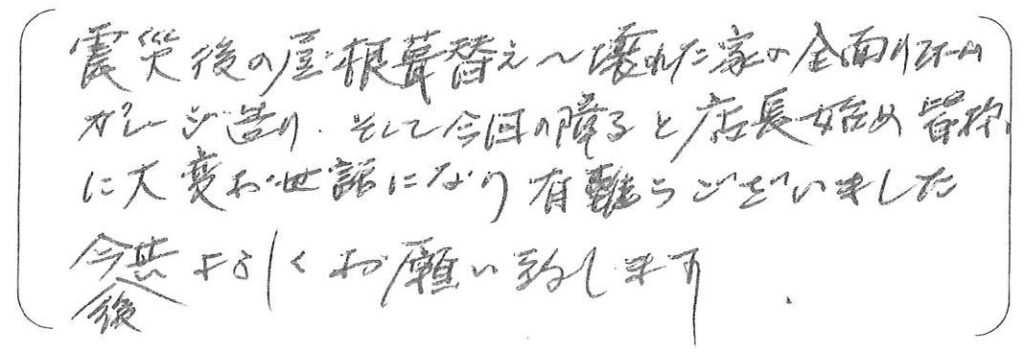 震災後の屋根葺替え～壊れた家の全面リホーム
ガレージ造り、そして今回の障ると店長始め皆様
に大変お世話になり有難うございました
今後共よろしくお願い致します.